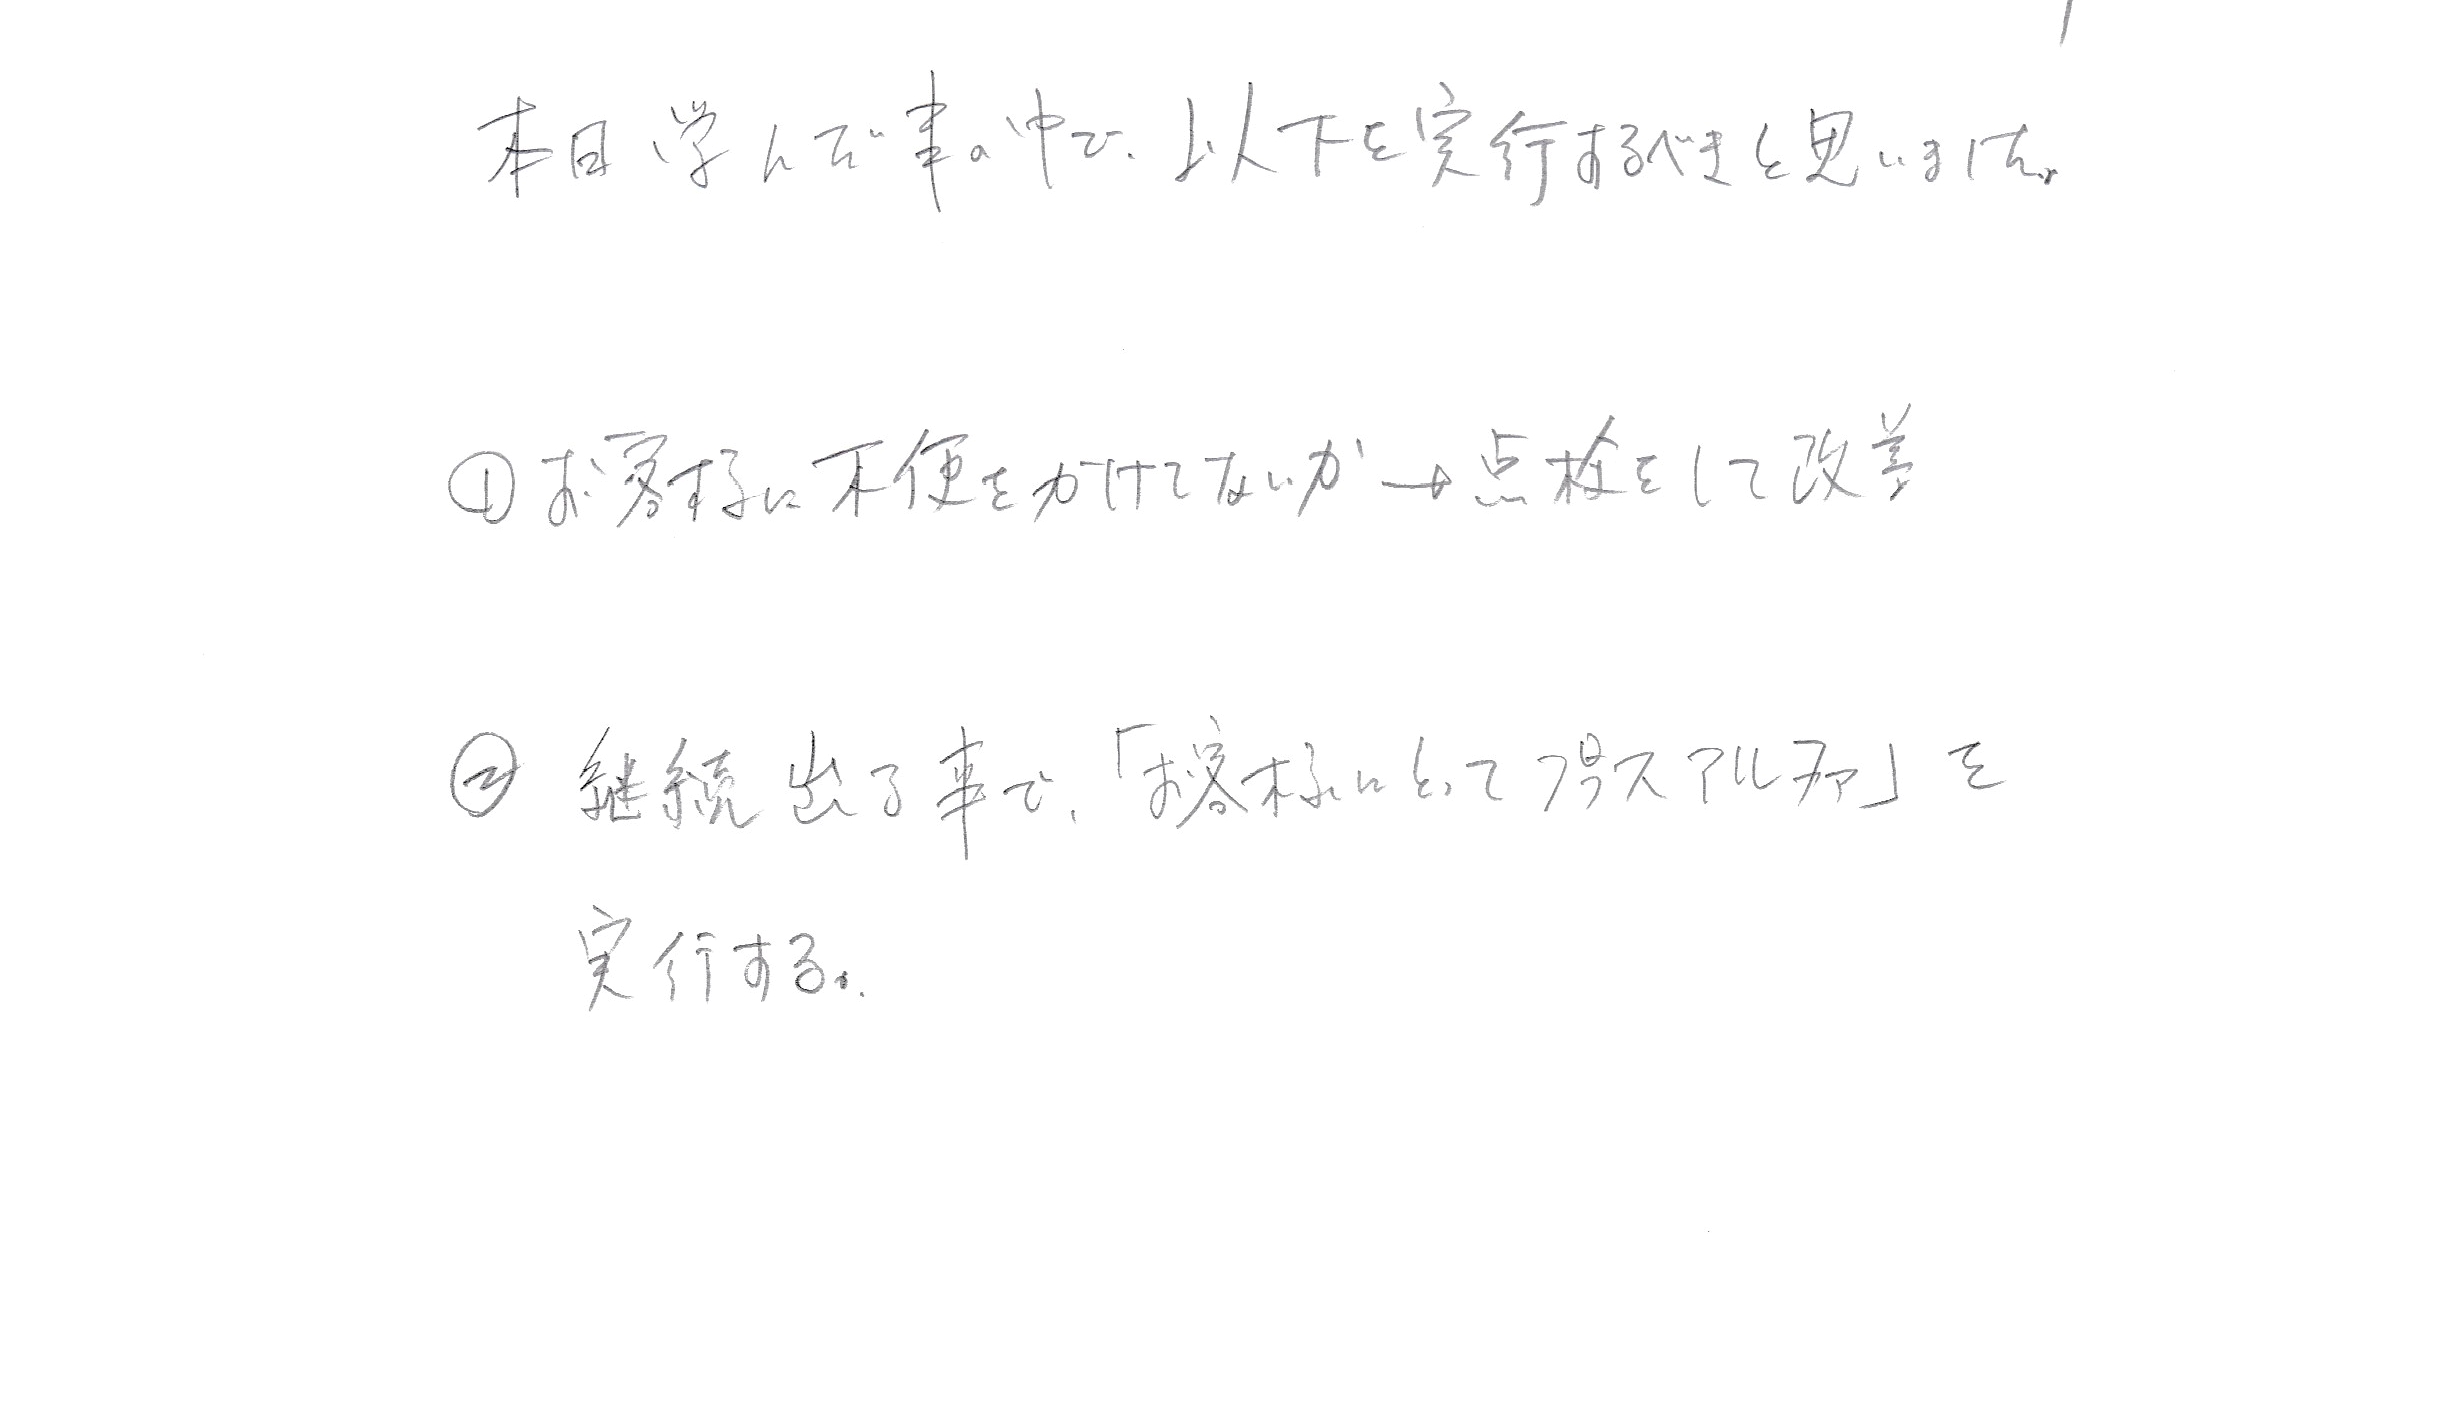 本日学んだ事の中で、以下を実行するべきと思いました。
①お客様に不便をかけてないか→点検をして改善
② 継続出る事で、「お客様にとってプラスアルファ」を
実行する。